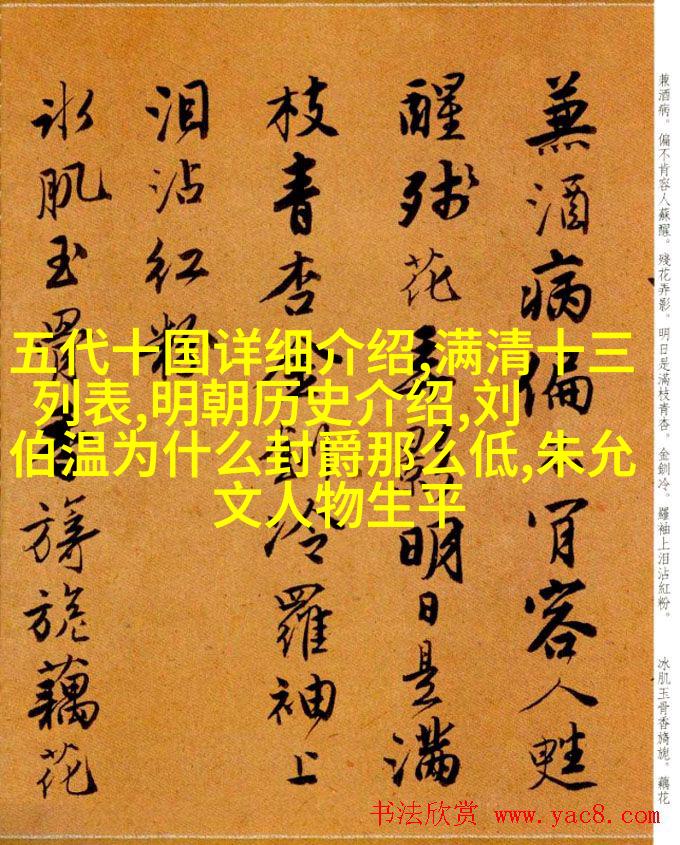 五代十国详细介绍,满清十三
列表,明朝历史介绍,刘
伯温为什么封爵那么低,朱允
文人物生平
兼酒病偏不肯容人甦
醒殘花弄影明日是滿
枝青杏金釧冷羅袖上
泪沾紅粉
冰肌玉骨香旖旎藕花
兼酒病。偏不肯容人蘇醒。殘花弄影。明日是滿枝青杏。金釧冷。羅袖上泪沾紅粉。
冰肌玉骨香旖旎。藕花
书法欣赏 www.yac8.com